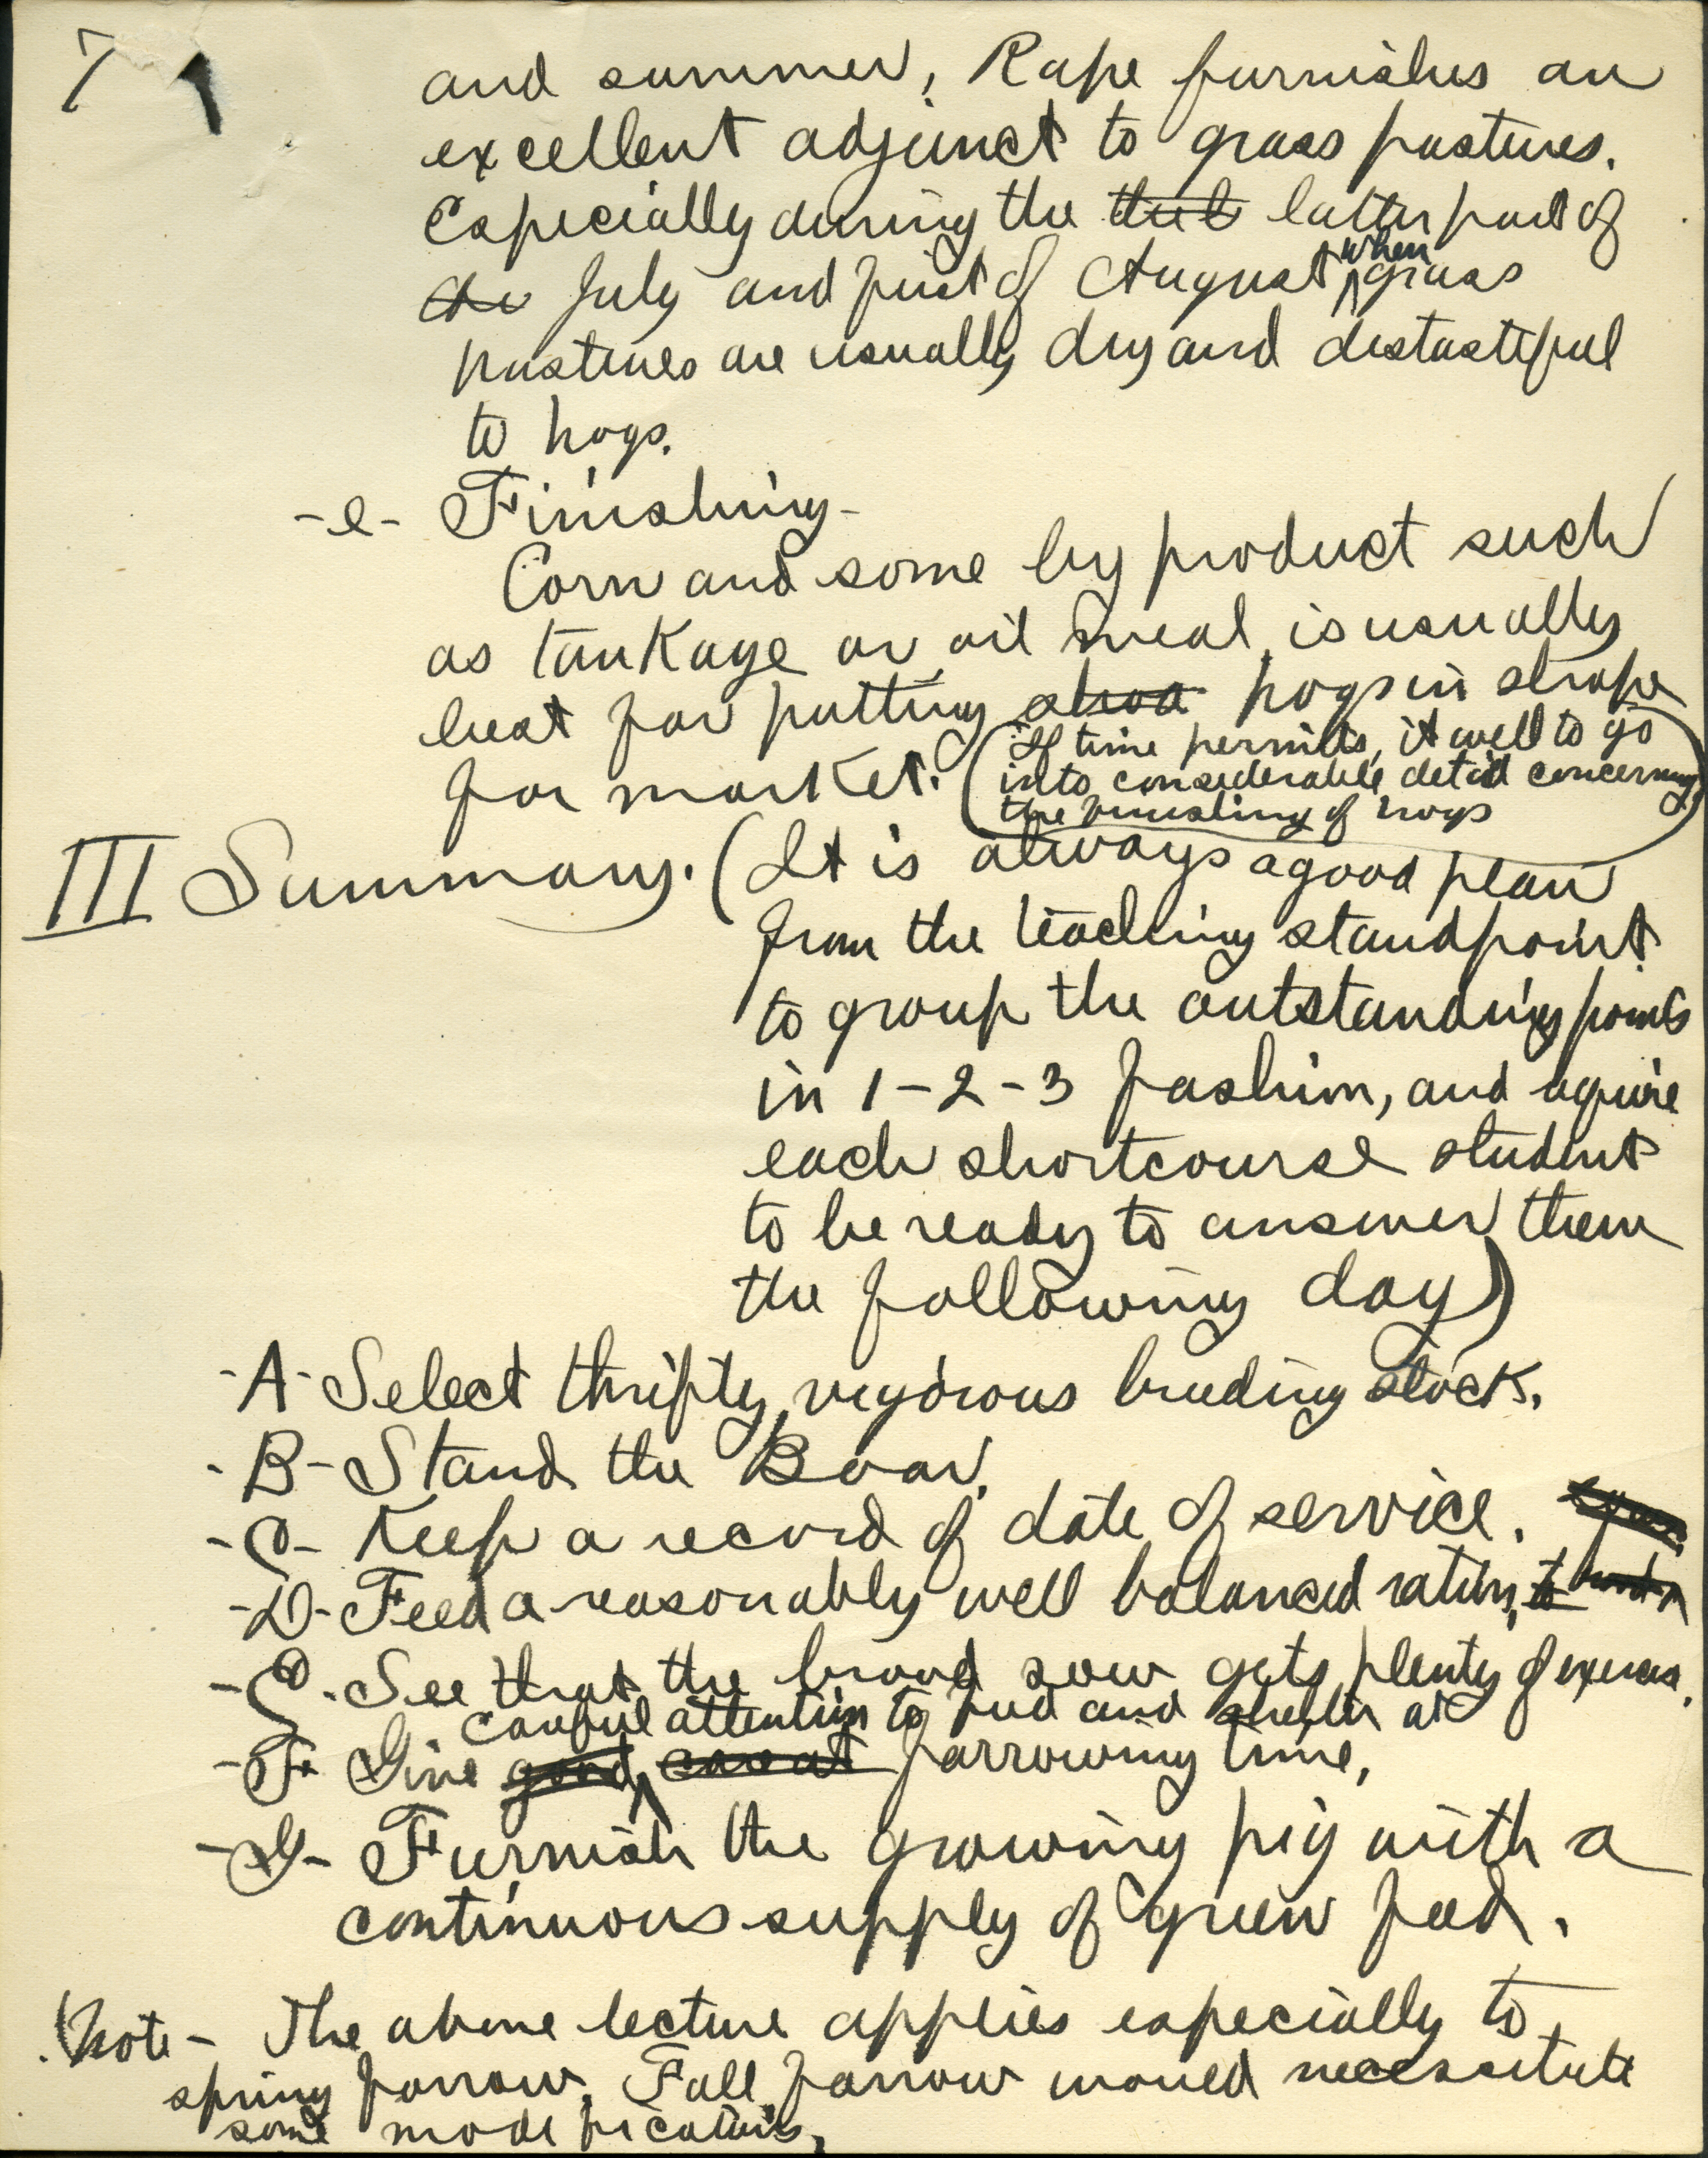 7
and summer, Rape furnishes an
excellent adjunct to grass pastures.
Especially during the latter part of
the July and first of August when grass
pastures are usually dry and distasteful
to hogs.
-e- Finishing-
Corn and some by product such
as tanKage or oil meal, is usually
best for putting shoa hogs in shape
for market. (If time permits, it well to go
into considerable detail concerning
the finishing of hogs)
III Summary. (It is always a good plan
from the teaching standpoint
to group the outstanding points
in 1-2-3 fashion, and require
each shortcourse student
to be ready to answer them
the following day)
-A- Select thrifty, vigorous breeding stock.
-B- Stand the Boar.
-C- Keep a record of date of service.
-D- Feed a reasonably well balanced ration, to
-E- See that the brood sow gets plenty of exercise.
careful attention to feed and shelter at
-F- Give good care at farrowing time.
-G- Furnish the growing pig with a
continuous supply of green feed.
Note- The above lecture applies especially to
spring farrow. Fall farrow would necessitate
some modifications.